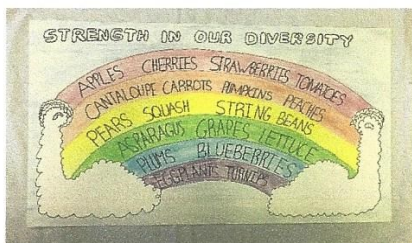 STRENGTH IN OUR DIVERSITY
APPLES CHERRIES STRAWBERRIES TOMATOES
CANTALOUPE CARROTS PUMPKINS PEACHES
PEARS SQUASH STRING BEANS
ASPARAGUS GRAPES LETTUCE
PLUMS BLUEBERRIES
EGGPLANTS TURNIPS